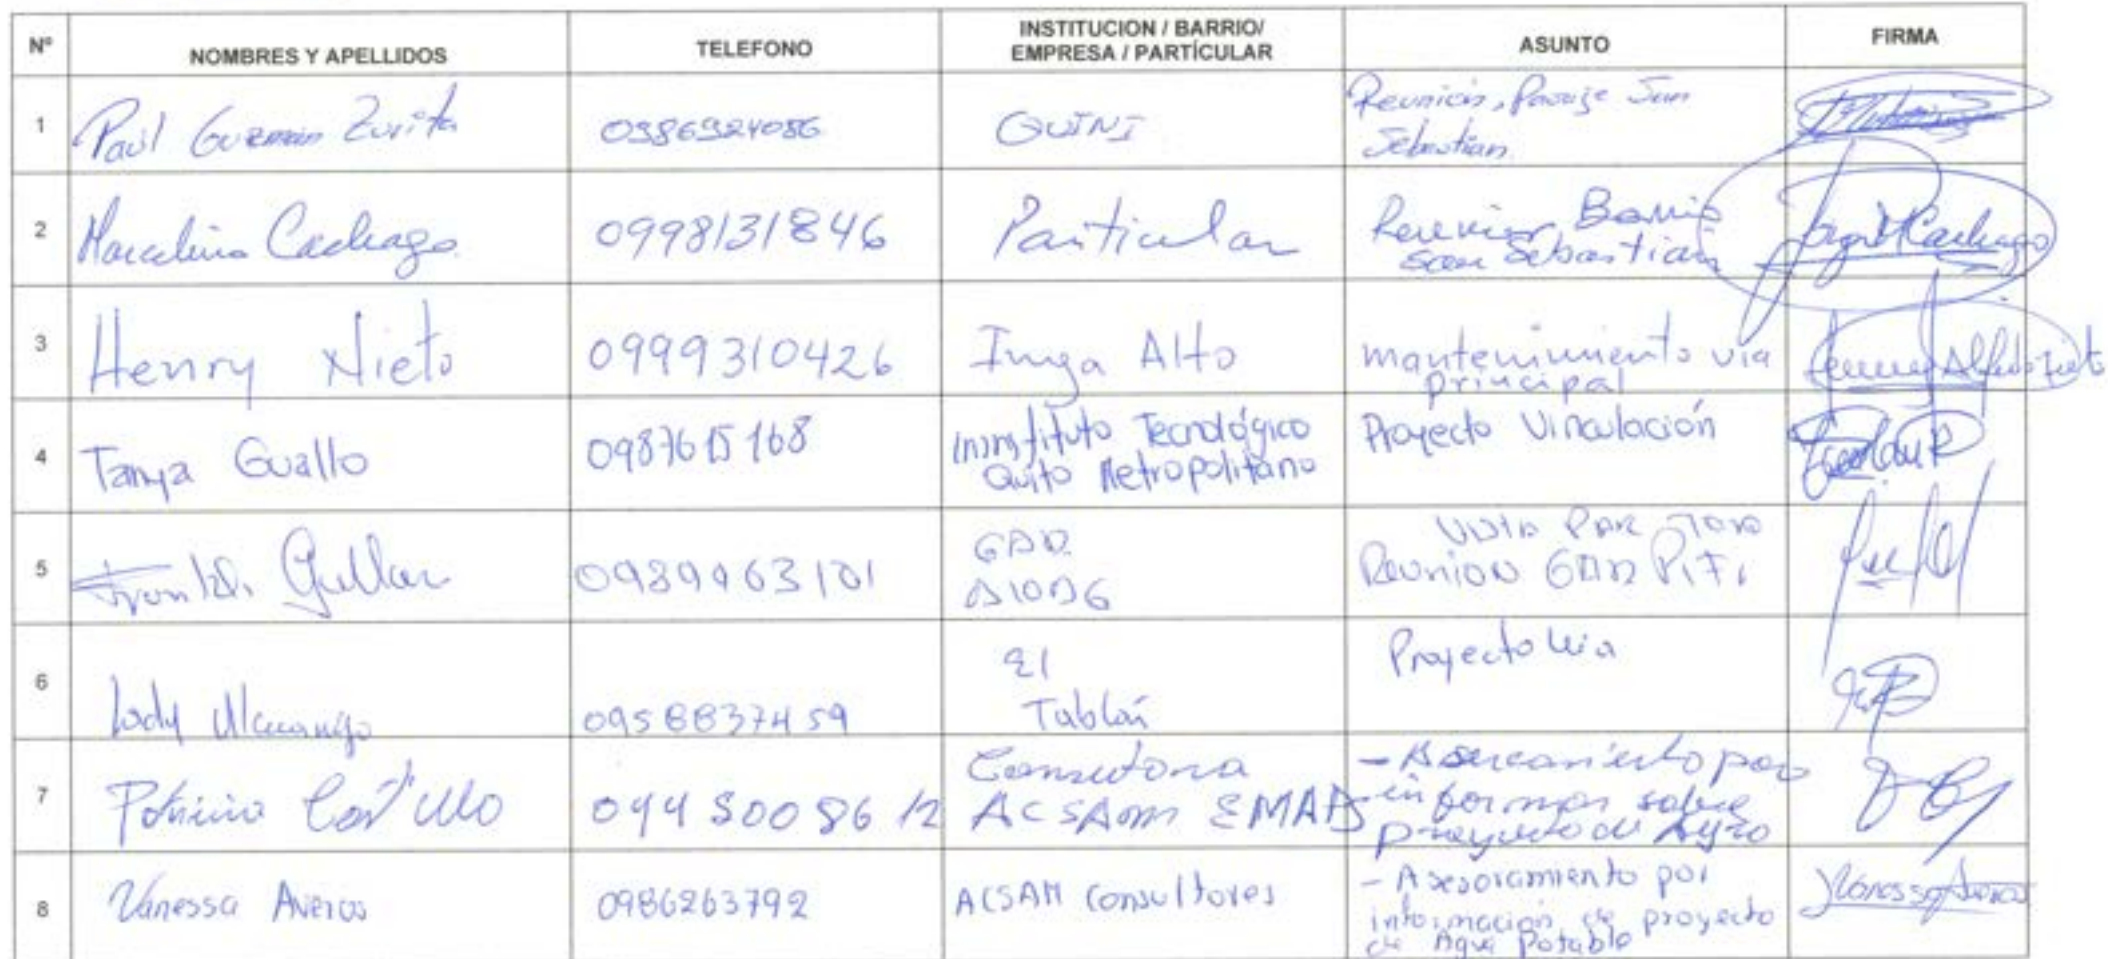 Nº NOMBRES Y APELLIDOS TELEFONO INSTITUCION / BARRIO/ EMPRESA / PARTÍCULAR ASUNTO FIRMA
1 Paúl Guzmán Zurita 0986924086 QUINI Reunión, Pasaje San
Sebastian
2 Marcelino Cachago 0998131846 Particular Reunion Barrio
San Sebastian
3 Henry Nieto 0999310426 Inga Alto mantenimiento via
principal
4 Tanya Guallo 0987615168 Ininstituto Tecnológico
Quito Metropolitano Proyecto Vinculación
5 0989963101 GAD
Reunion GAD
6 0958837459 El
Tablón Proyecto
7 Patricio Castillo ACSAM EMAPS
informar sobre
proyecto de
8 Vanessa Averos 0986263792 ACSAM Consultores - Asesoramiento por
información de proyecto
de Agua Potable